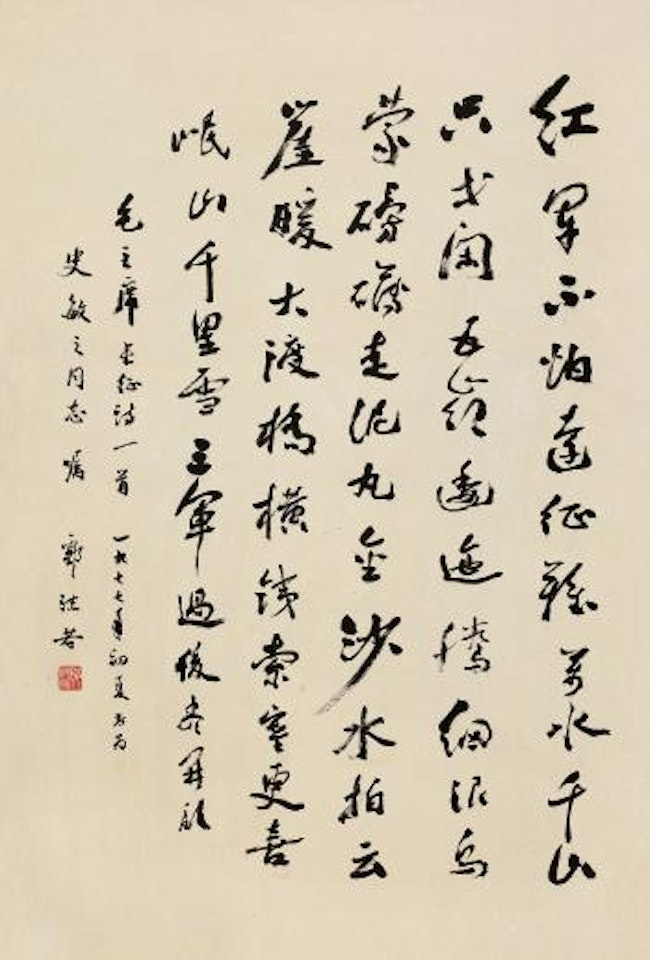 红軍不怕遠征難万水千山
只等闲五嶺逶迤騰细浪乌
蒙磅礴走泥丸金沙水拍云
崖暖大渡橋横铁索寒更喜
岷山千里雪三軍過後尽開颜
毛主席长征诗一首 一九七七年初夏书为
史敏之同志嘱 郭沫若